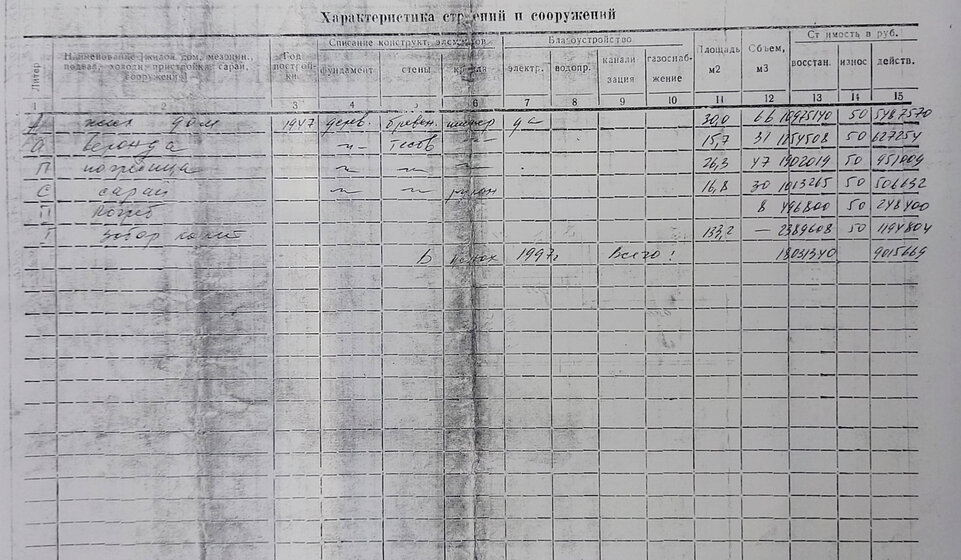 Характеристика строений и сооружений
Литер
Наименование (жилой дом, мезонин, подвал, холодн. пристройка, сарай, сооружение)
Год постройки
Списание конструкт. элементов
фундамент стены кровля
Благоустройство
электр. водопр. канализация газоснабжение
Площадь м2
Объем, м3
Стоимость в руб.
восстан. износ действ.
1 2 3 4 5 6 7 8 9 10 11 12 13 14 15
А жил дом 1947 дерев. бревен. шифер да 30,0 66 10975140 50 5487570
а веранда -"- тесов -"- 15,7 31 1254508 50 627254
П погребица -"- -"- 26,3 47 1902019 50 951009
С сарай -"- -"- рулон 16,8 30 1013265 50 506632
П погреб 8 496800 50 248400
Г забор 133,2 — 2389608 50 1194804
В ценах 1997г Всего: 18031340 9015669